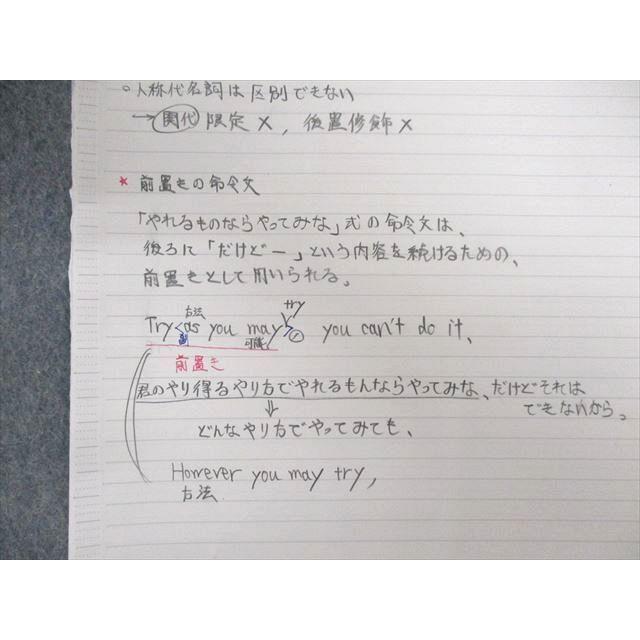 ○人称代名詞は区別できない
→関代 限定 ×, 後置修飾 ×
* 前置きの命令文
「やれるものならやってみな」式の命令文は、
後ろに「だけどー」という内容を続けるための、
前置きとして用いられる。
方法 try
Try <as you may> you can't do it.
副 可能
前置き
君のやり得るやり方でやれるもんならやってみな、だけどそれは
できないから。
⇓
どんなやり方でやってみても、
However you may try,
方法